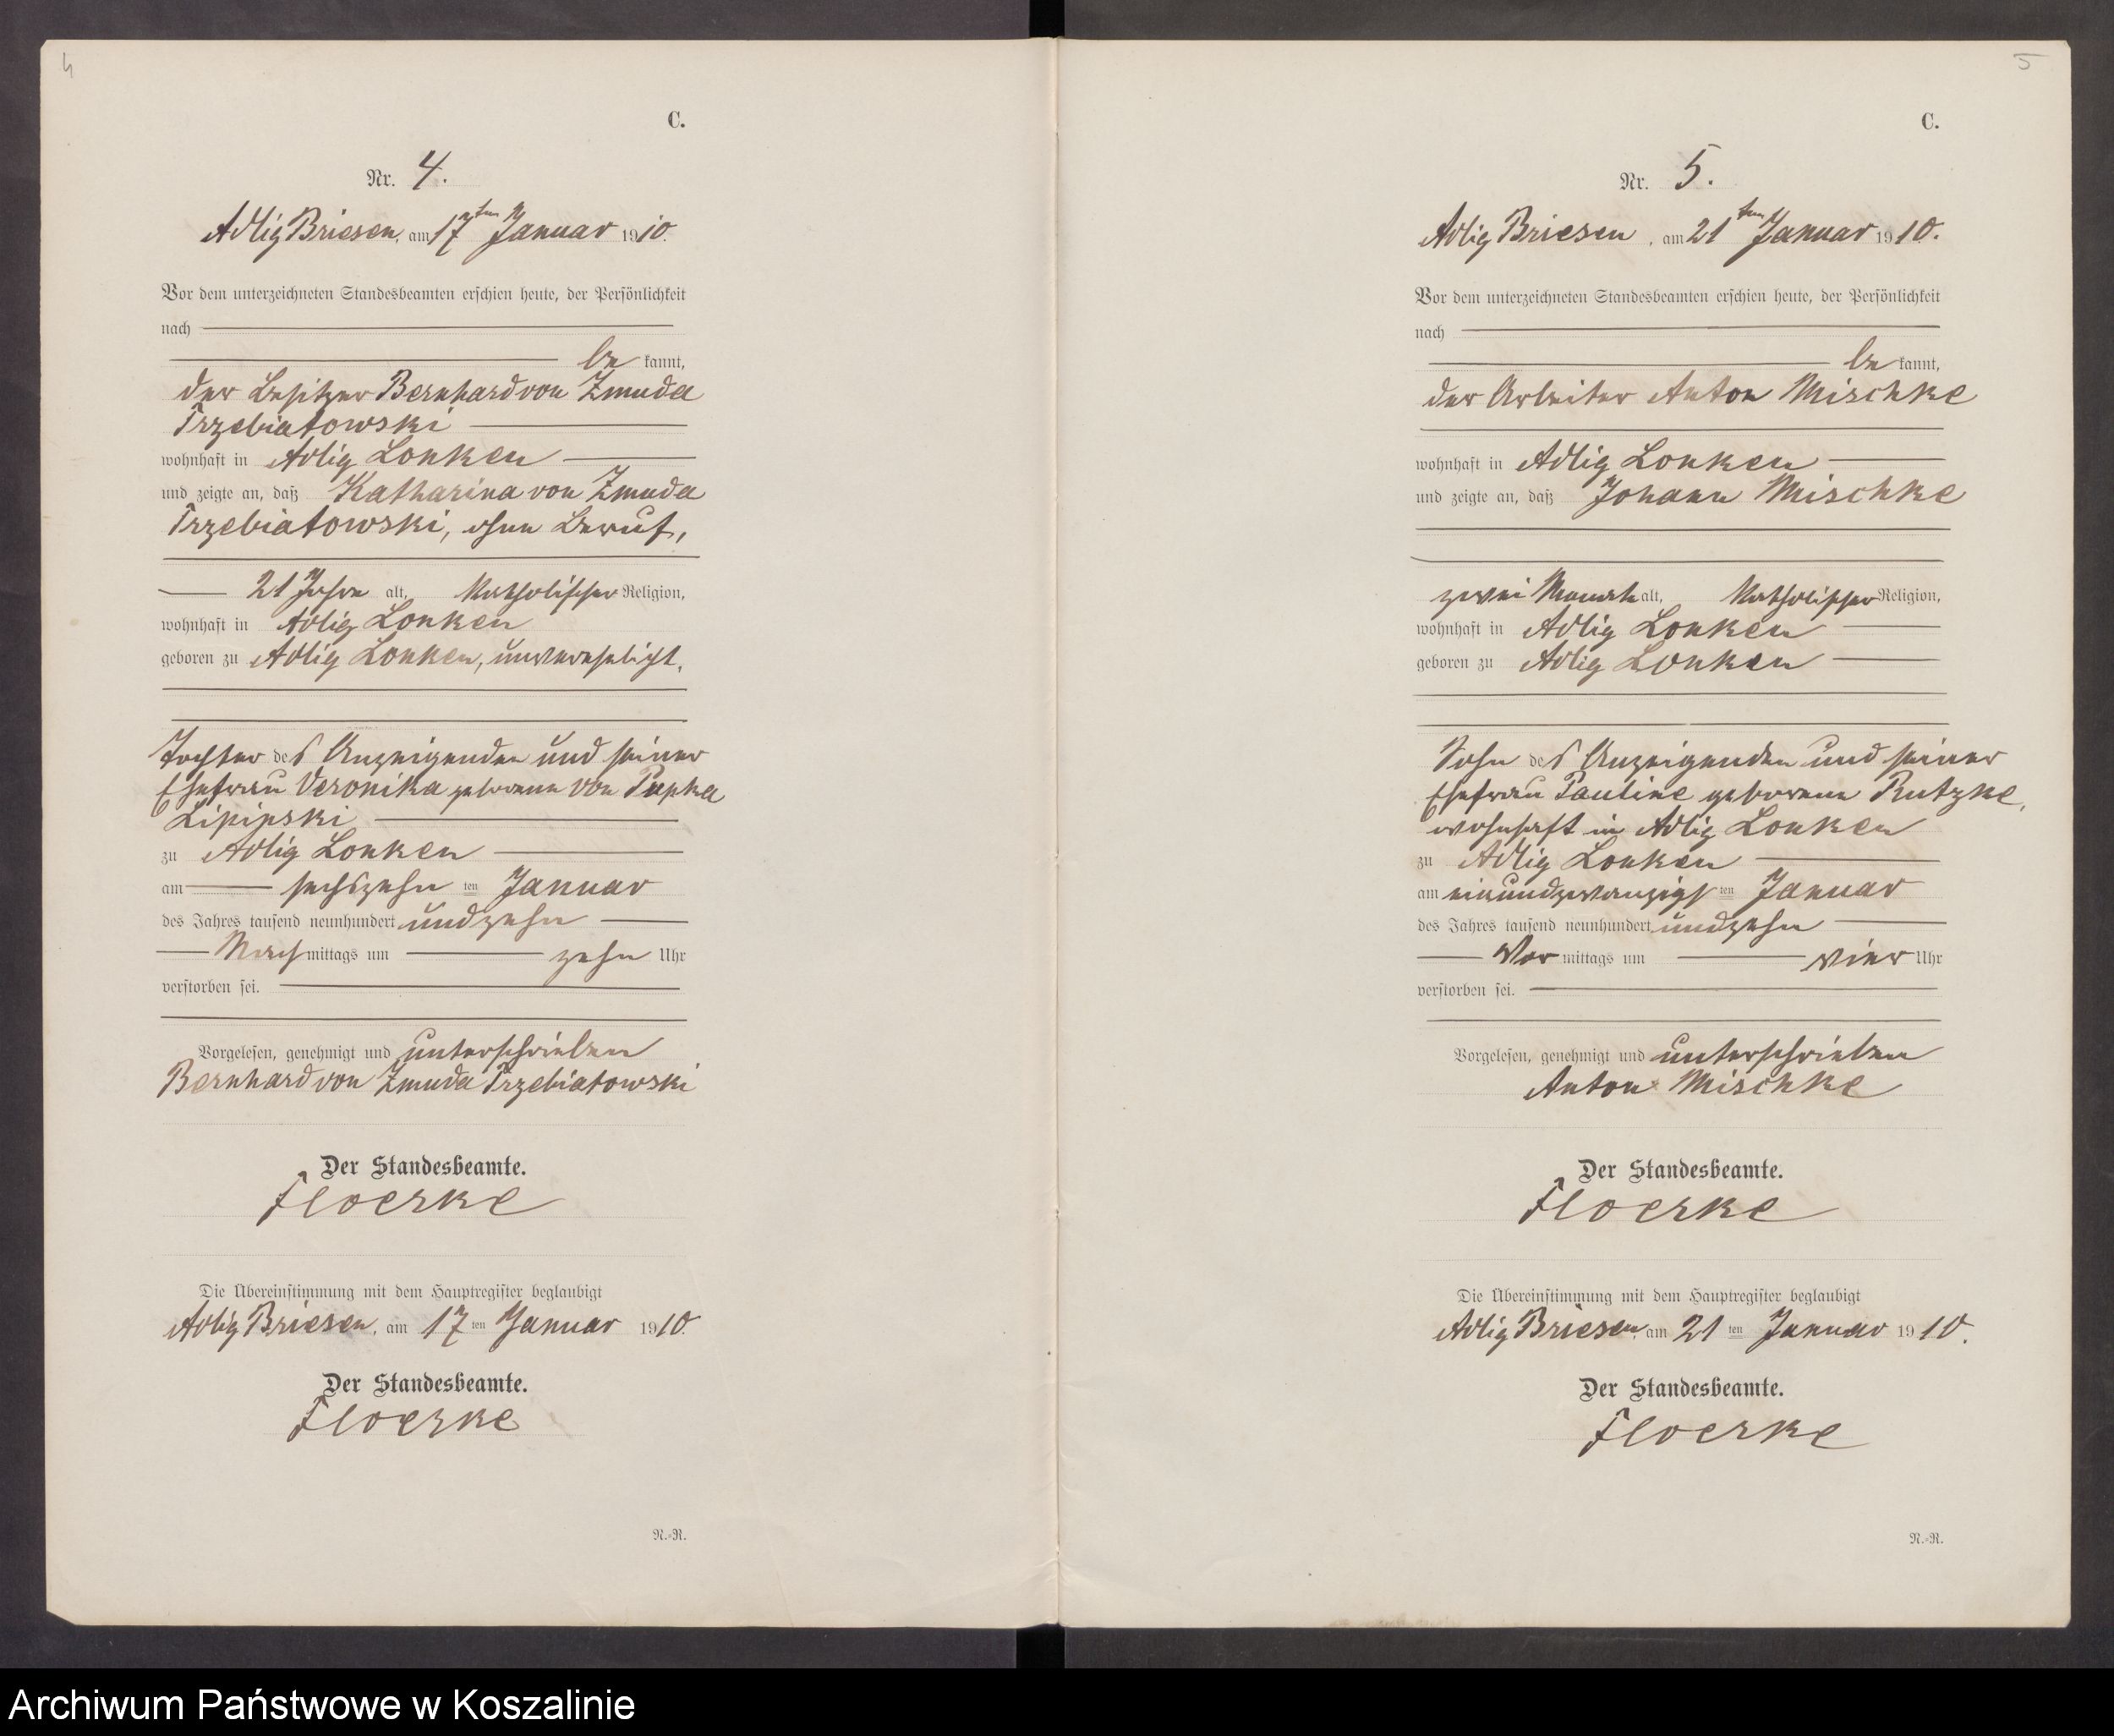 4
C.
Nr. 4.
Adlig Briesen, am 17ten Januar 1910.
Vor dem unterzeichneten Standesbeamten erschien heute, der Persönlichkeit
nach
be kannt,
der Besitzer Bernhard von Zmuda
Trzebiatowski
wohnhaft in Adlig Lonken
und zeigte an, daß Katharina von Zmuda
Trzebiatowski, ohne Beruf,
21 Jahre alt, katholischer Religion,
wohnhaft in Adlig Lonken
geboren zu Adlig Lonken, unverehelicht,
Tochter des Anzeigenden und seiner
Ehefrau Veronika geborene von Pupka
Lipinski
zu Adlig Lonken
am sechszehn ten Januar
des Jahres tausend neunhundert undzehn
Nach mittags um zehn Uhr
verstorben sei.
Vorgelesen, genehmigt und unterschrieben
Bernhard von Zmuda Trzebiatowski
Der Standesbeamte.
Floerke
Die Übereinstimmung mit dem Hauptregister beglaubigt
Adlig Briesen, am 17 ten Januar 1910.
Der Standesbeamte.
Floerke
N.-R.
5
C.
Nr. 5.
Adlig Briesen, am 21ten Januar 1910.
Vor dem unterzeichneten Standesbeamten erschien heute, der Persönlichkeit
nach
be kannt,
der Arbeiter Anton Mischke
wohnhaft in Adlig Lonken
und zeigte an, daß Johann Mischke
zwei Monate alt, katholischer Religion,
wohnhaft in Adlig Lonken
geboren zu Adlig Lonken
Sohn des Anzeigenden und seiner
Ehefrau Pauline geborene Rutzke,
wohnhaft in Adlig Lonken
zu Adlig Lonken
am einundzwanzigs ten Januar
des Jahres tausend neunhundert undzehn
Vor mittags um vier Uhr
verstorben sei.
Vorgelesen, genehmigt und unterschrieben
Anton Mischke
Der Standesbeamte.
Floerke
Die Übereinstimmung mit dem Hauptregister beglaubigt
Adlig Briesen, am 21 ten Januar 1910.
Der Standesbeamte.
Floerke
N.-R.
Archiwum Państwowe w Koszalinie